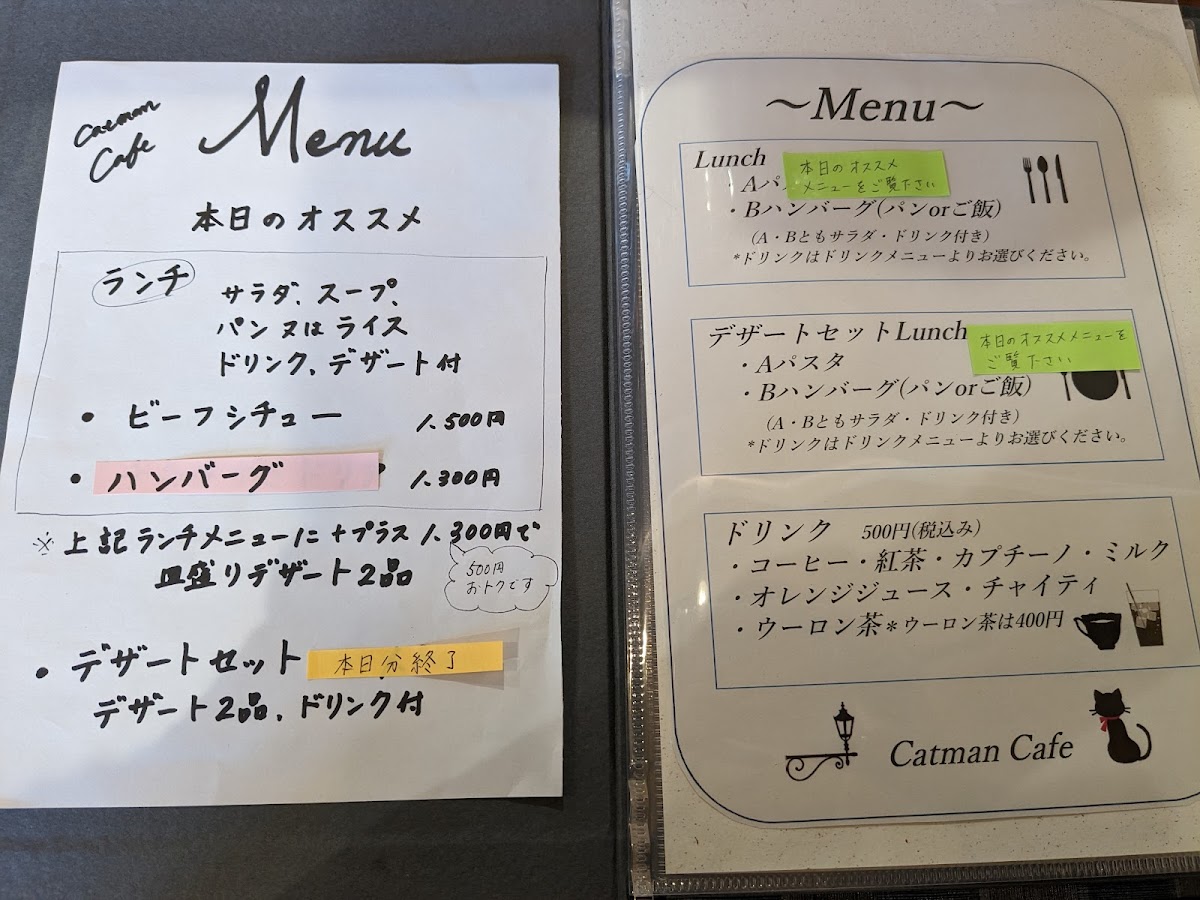 Catman
Cafe
Menu
本日のオススメ
ランチ
サラダ、スープ、
パン又はライス
ドリンク、デザート付
・ビーフシチュー 1,500円
・ハンバーグ 1,300円
※上記ランチメニューに+プラス1,300円で
皿盛りデザート2品
500円
おトクです
・デザートセット 本日分終了
デザート2品、ドリンク付
〜Menu〜
Lunch
本日のオススメ
メニューをご覧ださい
・Aパ
・Bハンバーグ(パンorご飯)
(A・Bともサラダ・ドリンク付き)
*ドリンクはドリンクメニューよりお選びください。
デザートセットLunch
本日のオススメメニューを
ご覧ださい
・Aパスタ
・Bハンバーグ(パンorご飯)
(A・Bともサラダ・ドリンク付き)
*ドリンクはドリンクメニューよりお選びください。
ドリンク 500円(税込み)
・コーヒー・紅茶・カプチーノ・ミルク
・オレンジジュース・チャイティ
・ウーロン茶*ウーロン茶は400円
Catman Cafe